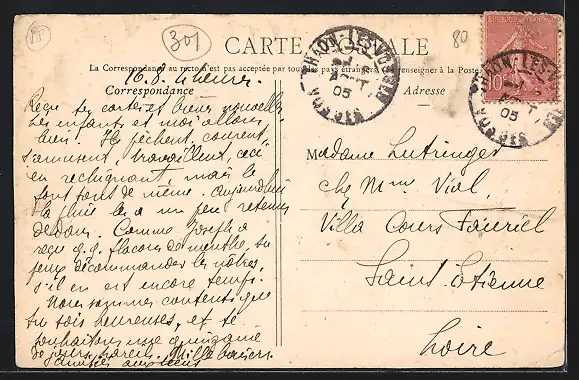 301
80
CARTE POSTALE
La Correspondance au recto n'est pas acceptée par tous les pays étrangers (se renseigner à la Poste)
Correspondance
Adresse
THAON-LES-VOSGES
05
VOSGES
THAON-LES-VOSGES
05
VOSGES
RÉPUBLIQUE FRANÇAISE
10
16.8. 4 heures.
Reçu ses cartes et bonnes nouvelles
Les enfants et moi allons
bien. Ils pêchent, courent,
s'amusent, travaillent, ceci
en rechignant, mais le
font tout de même. Aujourd'hui
la pluie les a un peu retenus
dedans. Comme Joseph a
reçu q.q. flacons de menthe, tu
peux décommander les nôtres,
s'il en est encore temps.
Nous sommes contents que
tu sois heureuse, et te
souhaitons une quinzaine
de jours pareils. Mille baisers
Madame Lutringer
chez Mme Vial,
Villa Cours Fauriel
Saint-Etienne
Loire